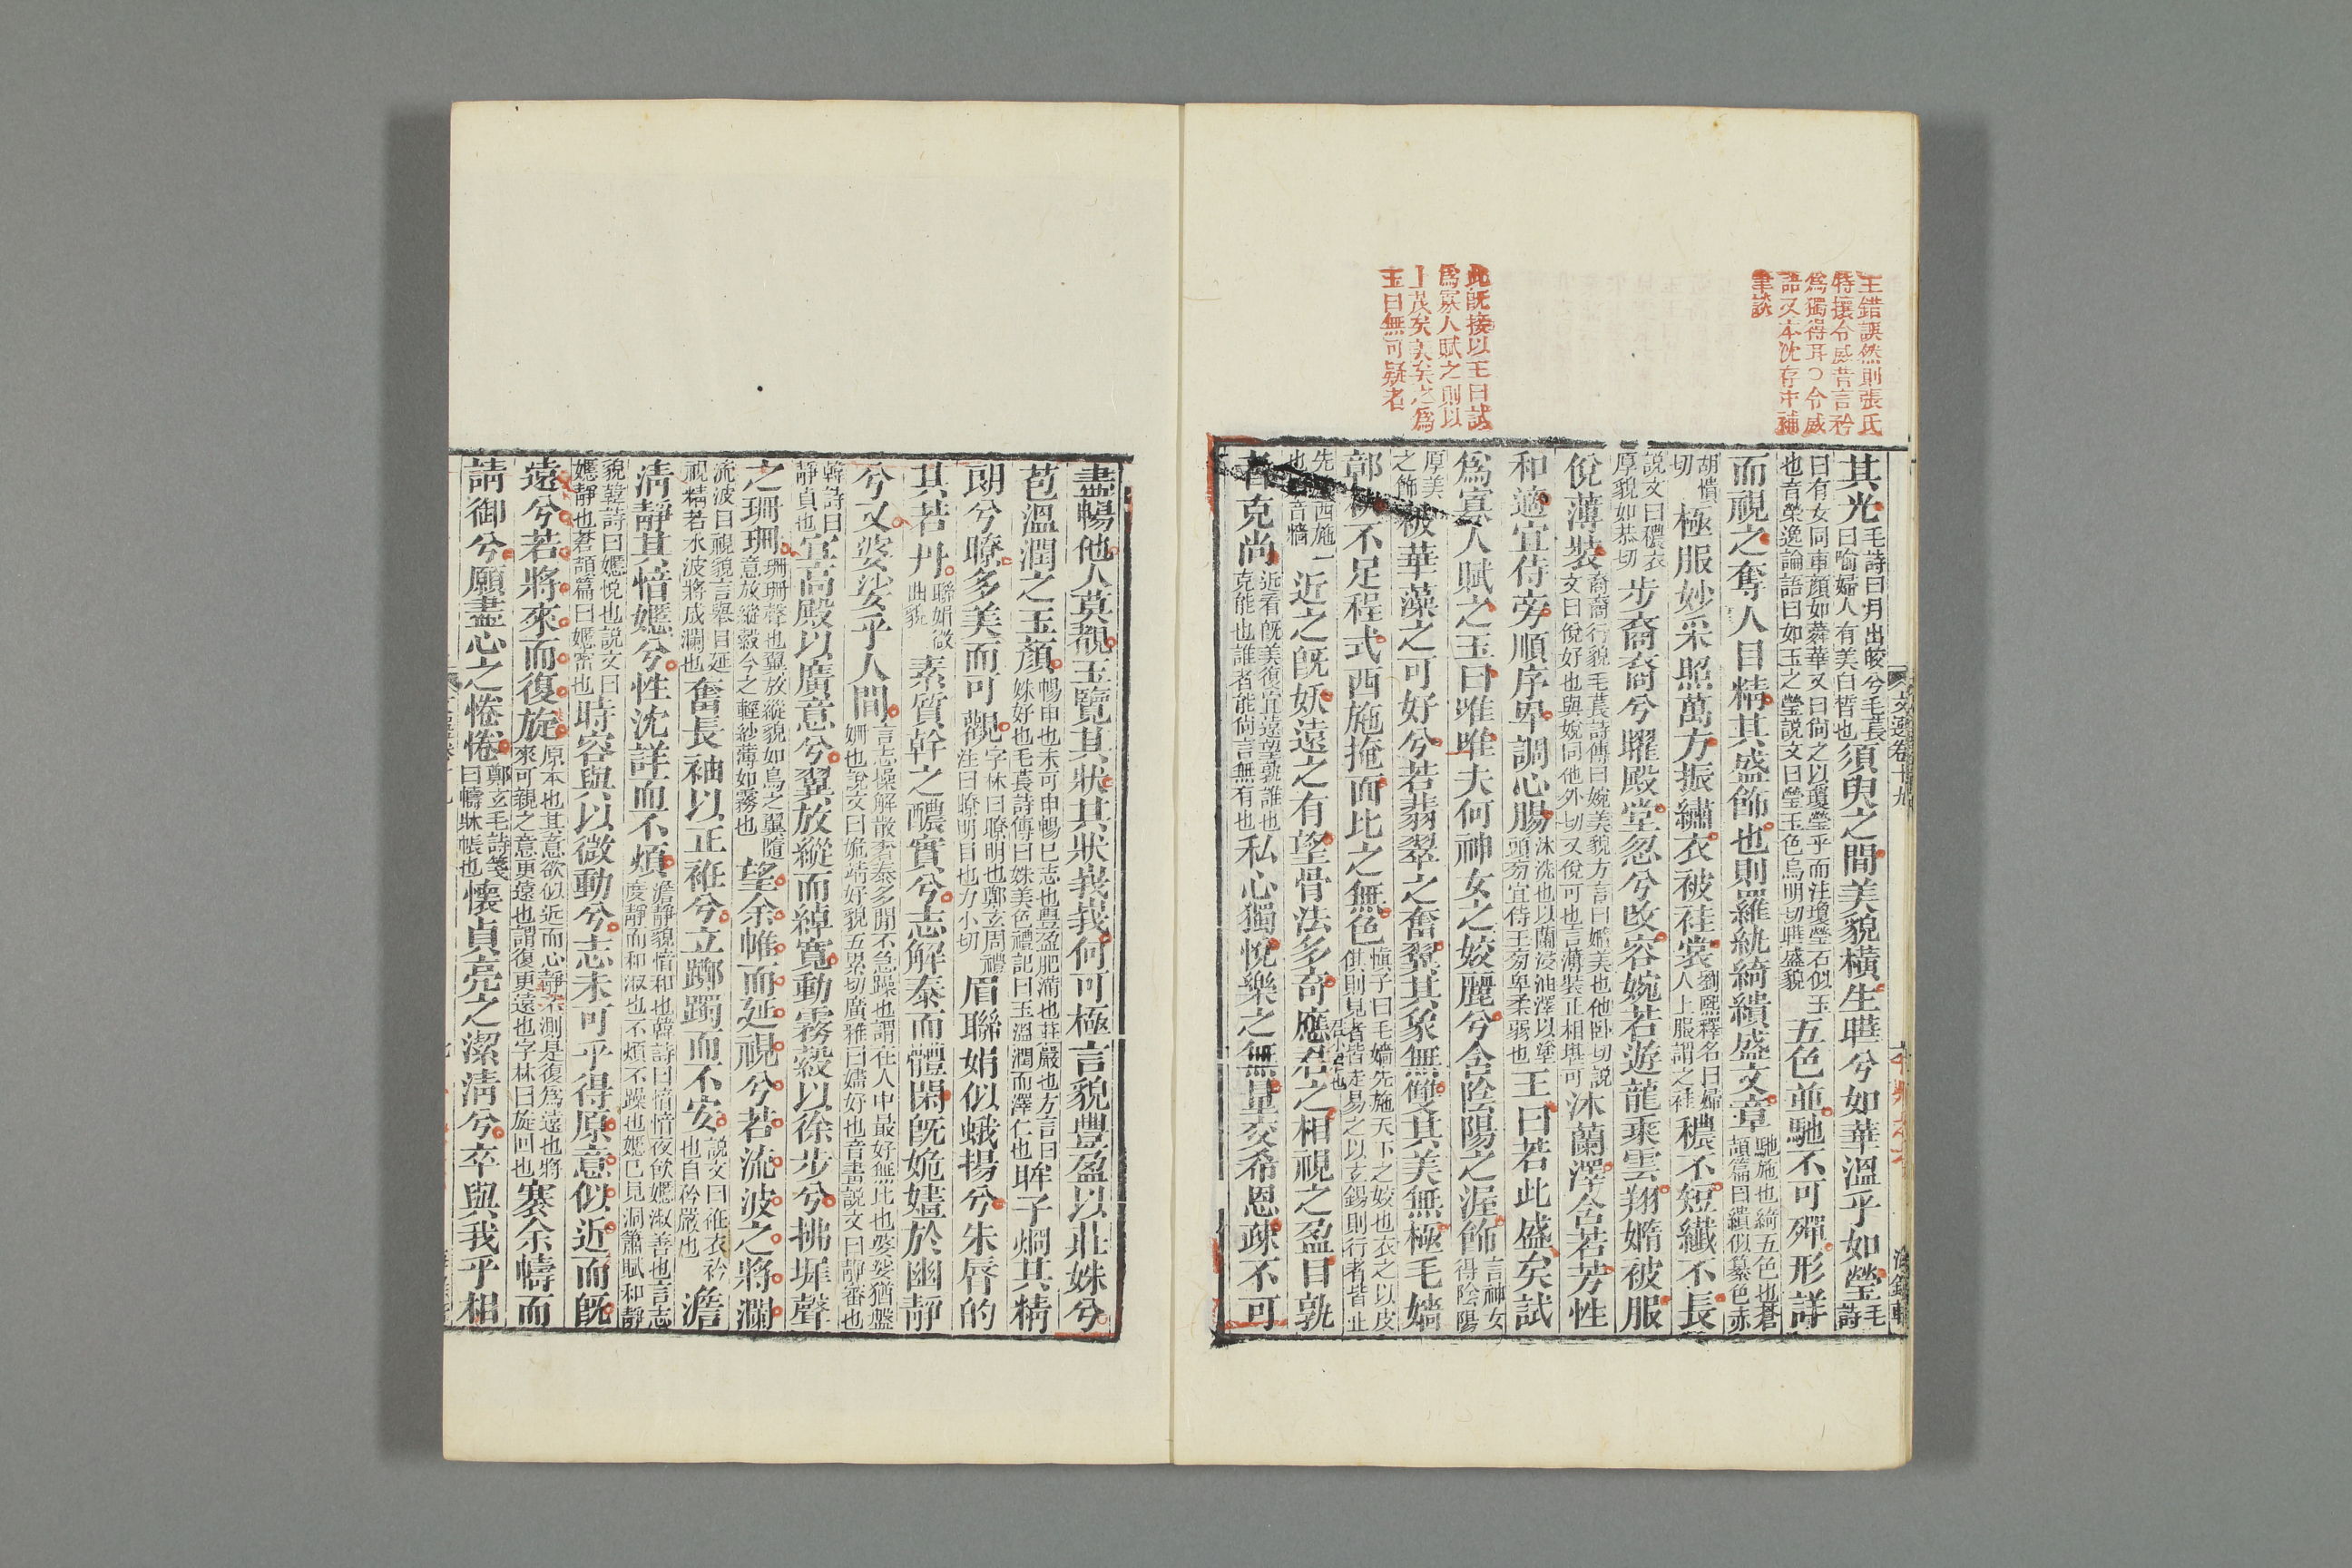 王錯誤然則張氏
特攘令威昔言矜
爲獨得耳○令威
語又本沈存中補
筆談
此既接以王曰試
爲寡人賦之則以
上茂矣美矣之爲
玉曰無可疑者
文選卷十九
其光毛詩曰月出皎兮毛萇曰喻婦人有美白皙也須臾之間美貌橫生曄兮如華溫乎如瑩毛詩
曰有女同車顏如蕣華又曰尚之以瓊瑩乎而注瓊瑩石似玉也音榮逸論語曰如玉之瑩說文曰瑩玉色烏明切曄盛貌五色並馳不可殫形詳
而視之奪人目精其盛飾也則羅紈綺繢盛文章馳施也綺五色也蒼頡篇曰繢似纂色赤
胡憒切極服妙采照萬方振繡衣被袿裳劉熙釋名曰婦人上服謂之袿穠不短纖不長
說文曰穠衣厚貌如恭切步裔裔兮曜殿堂忽兮改容婉若遊龍乘雲翔嫷被服
侻薄裝裔裔行貌毛萇詩傳曰婉美貌方言曰嫷美也他臥切說文曰侻好也與娧同他外切又侻可也言薄裝正相堪可沐蘭澤含若芳性
和適宜侍旁順序卑調心腸沐洗也以蘭浸油澤以塗頭旁宜侍王旁卑柔弱也王曰若此盛矣試
爲寡人賦之玉曰唯唯夫何神女之姣麗兮含陰陽之渥飾言神女得陰陽
厚美之飾被華藻之可好兮若翡翠之奮翼其象無雙其美無極毛嬙
鄣袂不足程式西施掩面比之無色愼子曰毛嬙先施天下之姣也衣之以皮倛則見者皆走易之以玄錫則行者皆止
先西施也音牆近之既妖遠之有望骨法多奇應君之相視之盈目孰
者克尚近看既美復宜遠望孰誰也克能也誰者能尚言無有也私心獨悅樂之無量交希恩疎不可
盡暢他人莫覩玉覽其狀其狀峩峩何可極言貌豐盈以莊姝兮
苞溫潤之玉顏暢申也未可申暢已志也豐盈肥滿也莊嚴也方言曰姝好也毛萇詩傳曰姝美色禮記曰玉溫潤而澤仁也眸子烱其精
朗兮瞭多美而可觀字林曰瞭明也鄭玄周禮注曰瞭明目也力小切眉聯娟似蛾揚兮朱唇的
其若丹聯娟微曲貌素質幹之醲實兮志解泰而體閑既姽嫿於幽靜
兮又婆娑乎人間言志操解散奢泰多閒不急躁也謂在人中最好無比也婆娑猶盤姍也說文曰姽靖好貌五累切廣雅曰嫿好也音畫說文曰靜審也
韓詩曰靜貞也宜高殿以廣意兮翼放縱而綽寬動霧縠以徐步兮拂墀聲
之珊珊珊珊聲也翼放縱貌如鳥之翼隨意放縱縠今之輕紗薄如霧也望余帷而延視兮若流波之將瀾
流波目視貌言舉目延視精若水波將成瀾也奮長袖以正衽兮立躑躅而不安說文曰衽衣衿也自矜嚴也澹
淸靜其愔嫕兮性沈詳而不煩澹靜貌愔和也韓詩曰愔愔夜飮嫕淑善也言志度靜而和淑也不煩不躁也嫕已見洞簫賦和靜
貌韓詩曰嫕悅也說文曰嫕靜也蒼頡篇曰嫕密也時容與以微動兮志未可乎得原意似近而既
遠兮若將來而復旋原本也其意欲似近而心靜不測是復爲遠也將來可親之意更遠也謂復更遠也字林曰旋回也褰余幬而
請御兮願盡心之惓惓鄭玄毛詩箋曰幬牀帳也懷貞亮之潔淸兮卒與我乎相